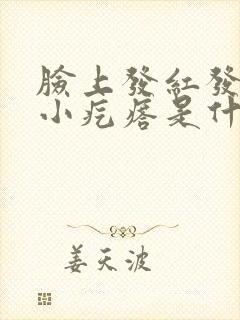 臉上發紅發
小疙瘩是什
姜天波